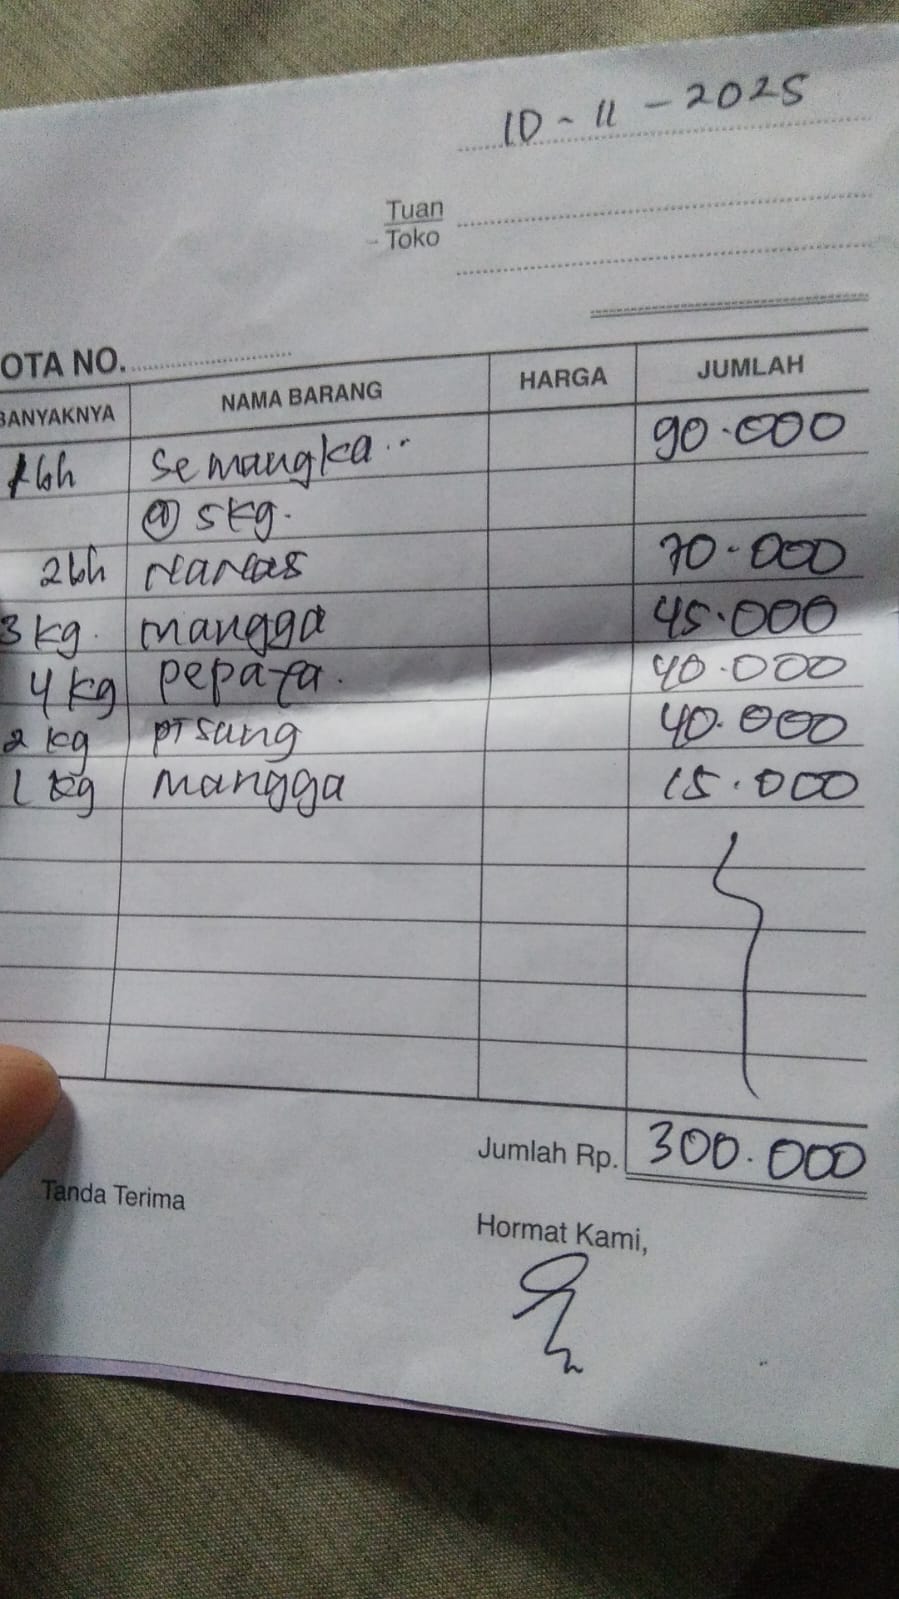 10 - 11 - 2025
Tuan
Toko
OTA NO.
BANYAKNYA NAMA BARANG HARGA JUMLAH
1bh Semangka 90.000
@ 5kg.
2bh nanas 70.000
3 kg. mangga 45.000
4 kg pepaya. 40.000
2 kg pisang 40.000
1 kg mangga 15.000
Jumlah Rp. 300.000
Tanda Terima
Hormat Kami,